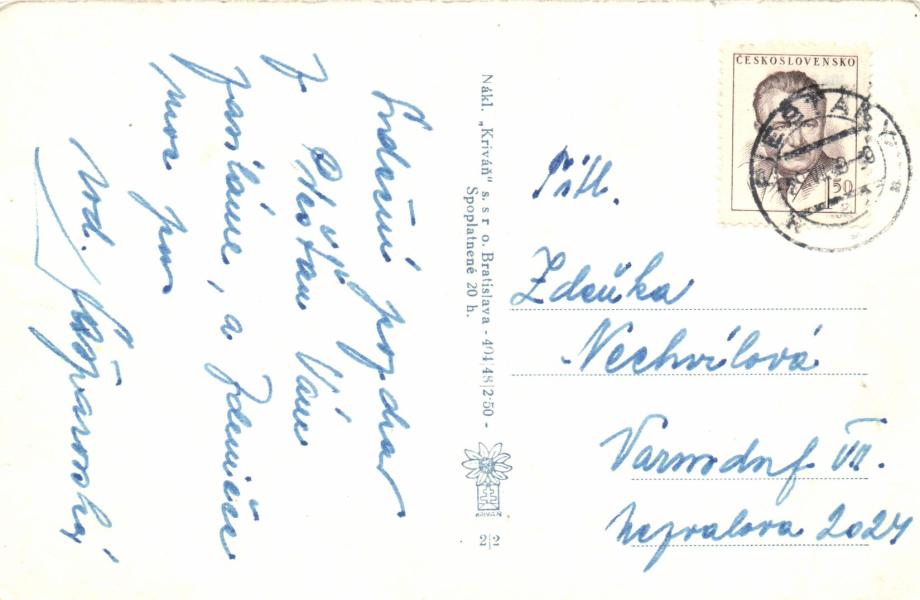 Srdečný pozdrav
z Piešťan Vám
zasíláme, a Zdeničce
moc pus
rod.
Nákl. „Kriváň" s. s r o. Bratislava - 494/48|2·50 -
Spoplatnené 20 h.
KRIVÁŇ
2|2
ČESKOSLOVENSKO
1,50
PIEŠŤANY
Ctěl.
Zdeňka
Nechvílová
Varnsdorf VII.
Nezvalova 2024